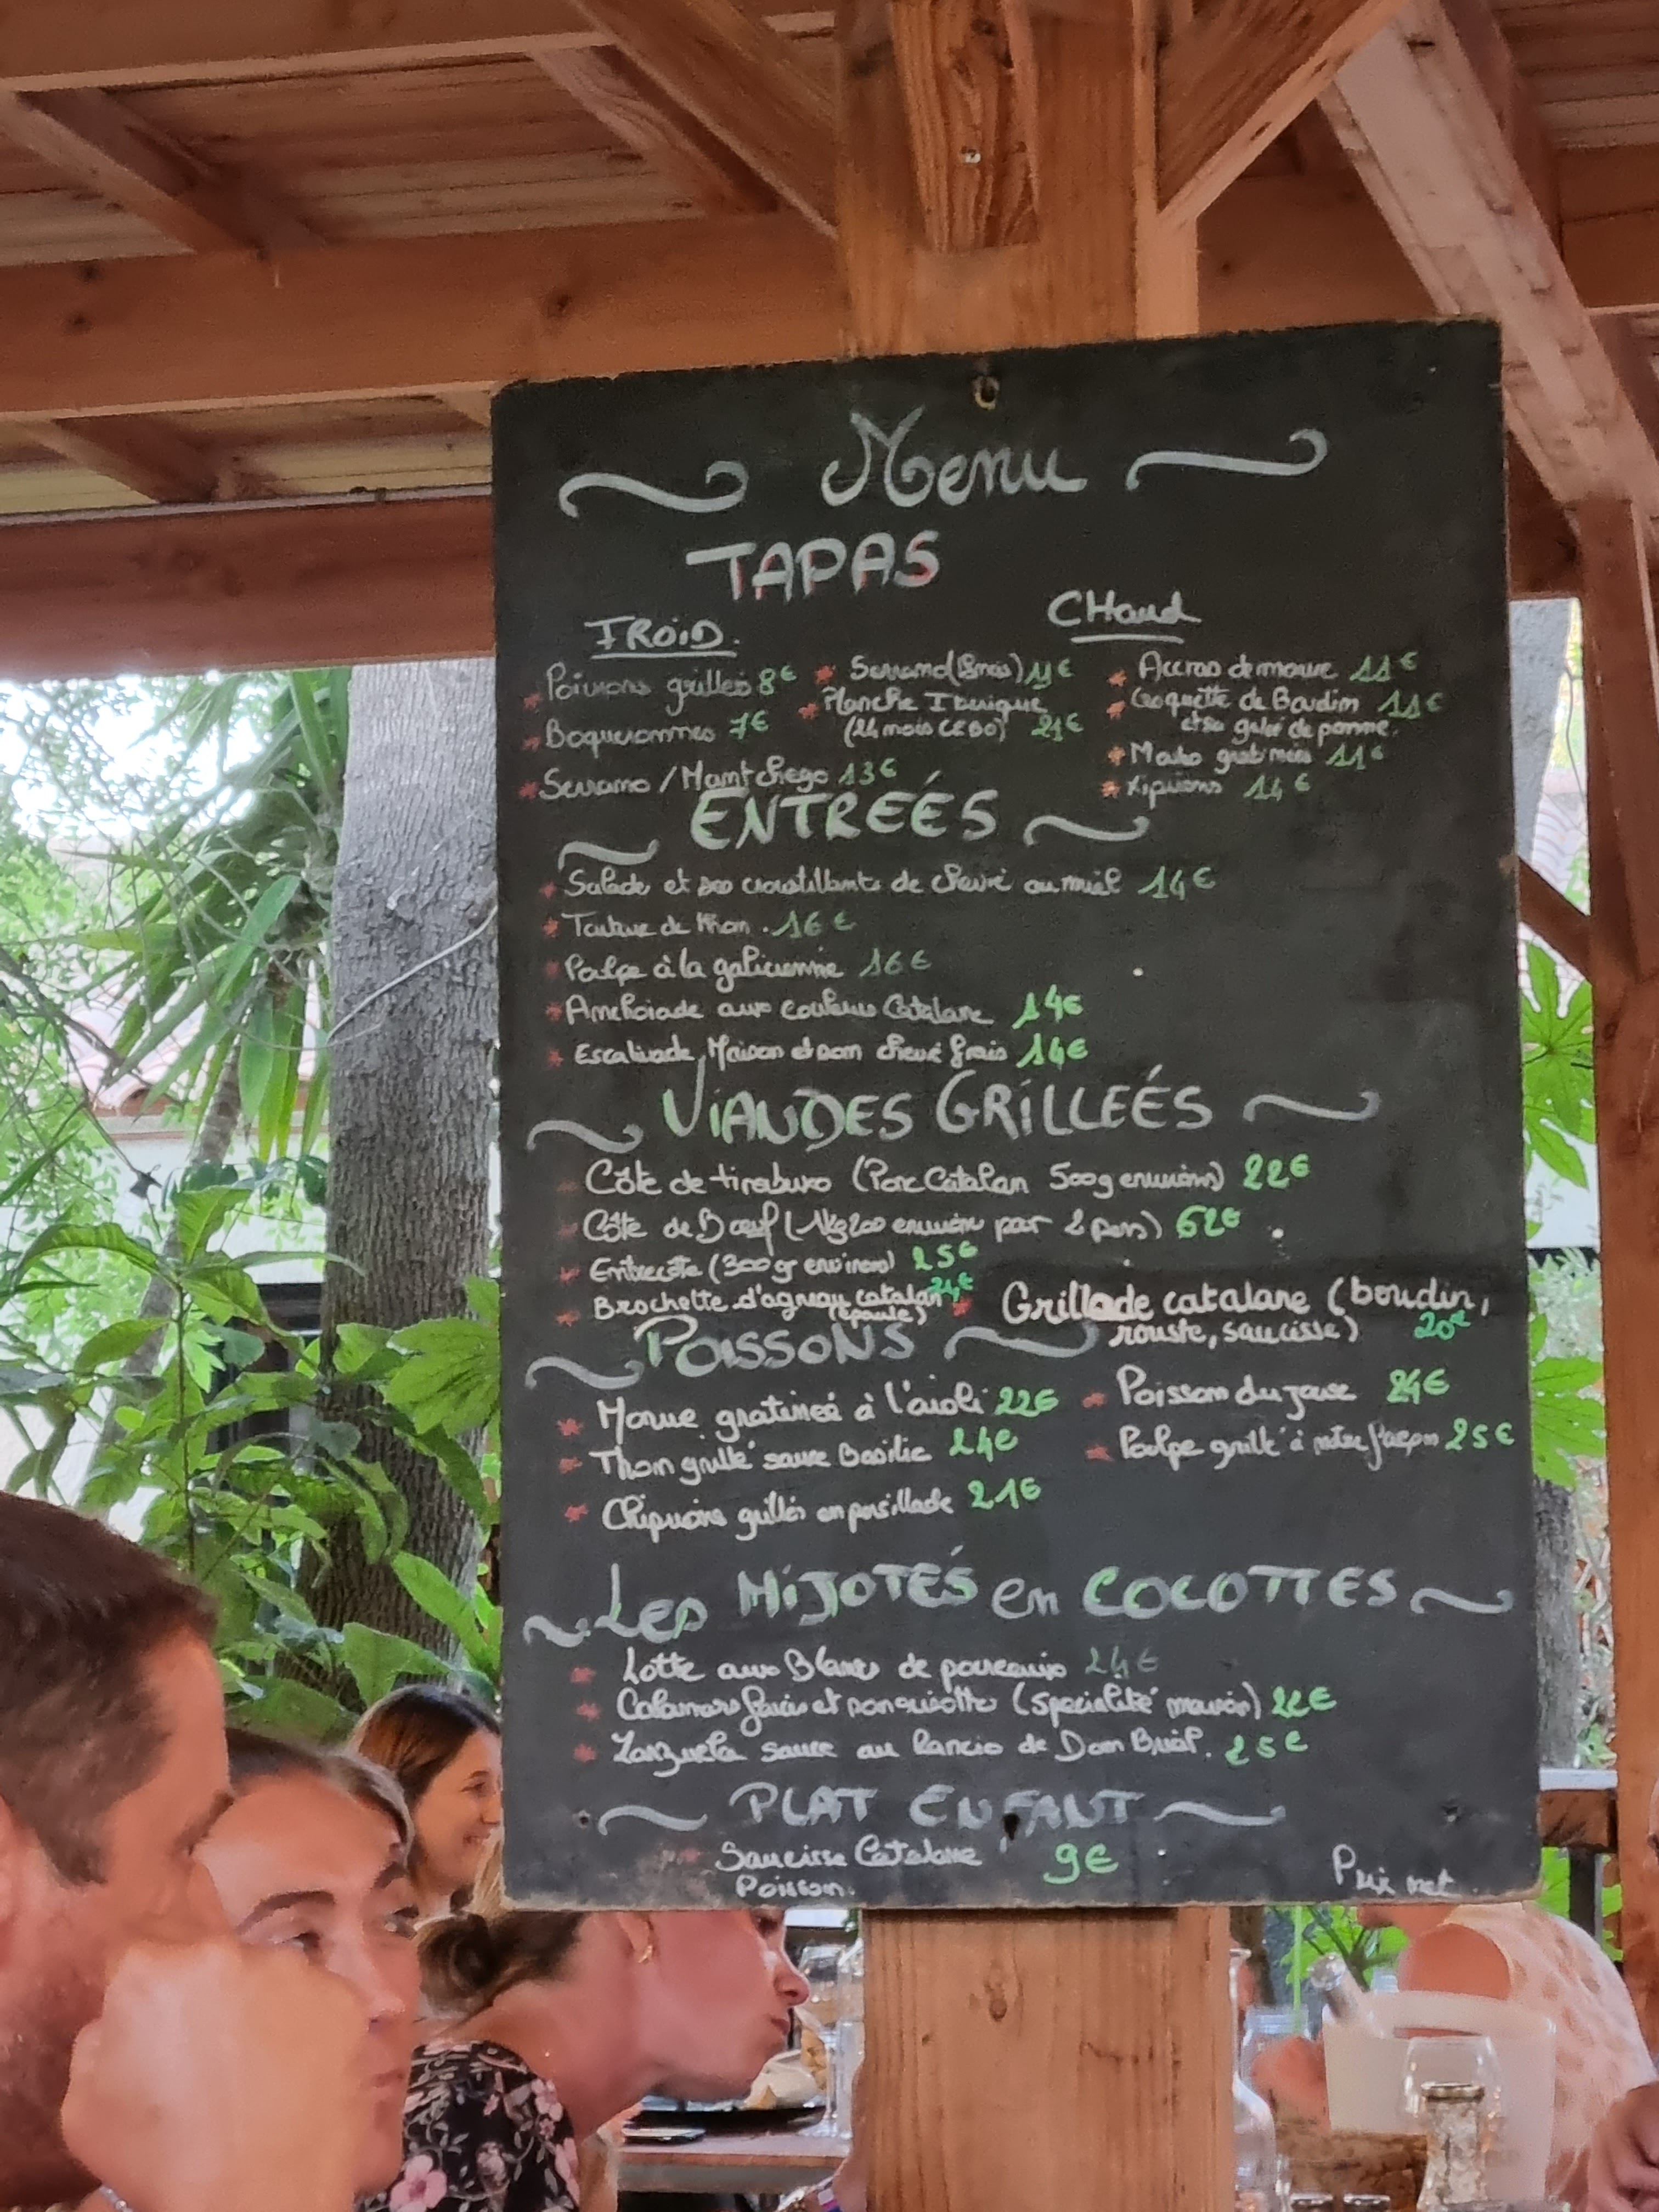 Menu
TAPAS
FROID.
CHaud
Poivrons grillés 8€
Boqueronnes 7€
Serrano / Mantchego 13€
Serrano 11€
Planche Iberique
(24 mois CEBO) 21€
Accras de morue 11€
Croquette de Boudin 11€
et sa gelée de pomme.
11€
Xipirons 14€
ENTREÉS
Salade et ses croustillants de chèvre au miel 14€
Tartare de thon. 16€
Poulpe à la galicienne 16€
Anchoiade aux couleurs Catalane 14€
Escalivade Maison et son chevre frais 14€
ViANDES GRiLLEÉS
Côte de tirabuxo (Porc Catalan 500g environ) 22€
Côte de Bœuf (1kg200 environ par 2 pers) 62€
Entrecôte (300gr environ) 25€
Brochette d'agneau catalan 24€
(épaule)
Grillade catalane (boudin,
rouste, saucisse) 20€
POISSONS
Morue gratineé à l'aioli 22€
Thon grillé sauce Basilic 24€
Chipirons grillés en persillade 21€
Poisson du jour 24€
Poulpe grillé à notre façon 25€
Les MiJOTÉS en COCOTTES
Lotte aux Blancs de poireaux 24€
Calamars farcis et son risotto (spécialité maison) 22€
Zarzuela sauce au Rancio de Dom Brial. 25€
PLAT ENFANT
Saucisse Catalane
Poisson.
9€
Prix net